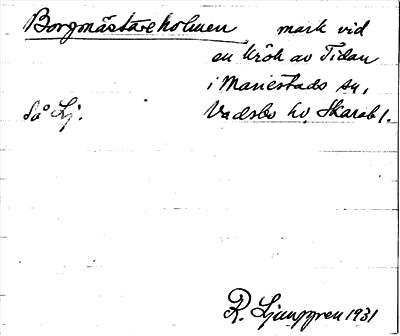 Borgmästareholmen mark vid
en krök av Tidan
i Mariestads sn,
så Lj. Vadsbo hd, Skarab l.
R. Ljunggren 1931